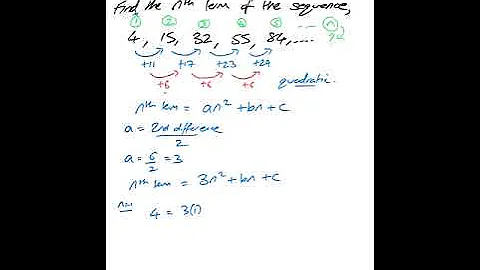 Find the nth term of the sequence,
① ② ③ ④ ⑤ --- ⓝ
4, 15, 32, 55, 84, ....
+11 +17 +23 +29
+6 +6 +6
quadratic.
nth term = an² + bn + c
a = 2nd difference
2
a = 6/2 = 3
nth term = 3n² + bn + c
n=1 4 = 3(1)